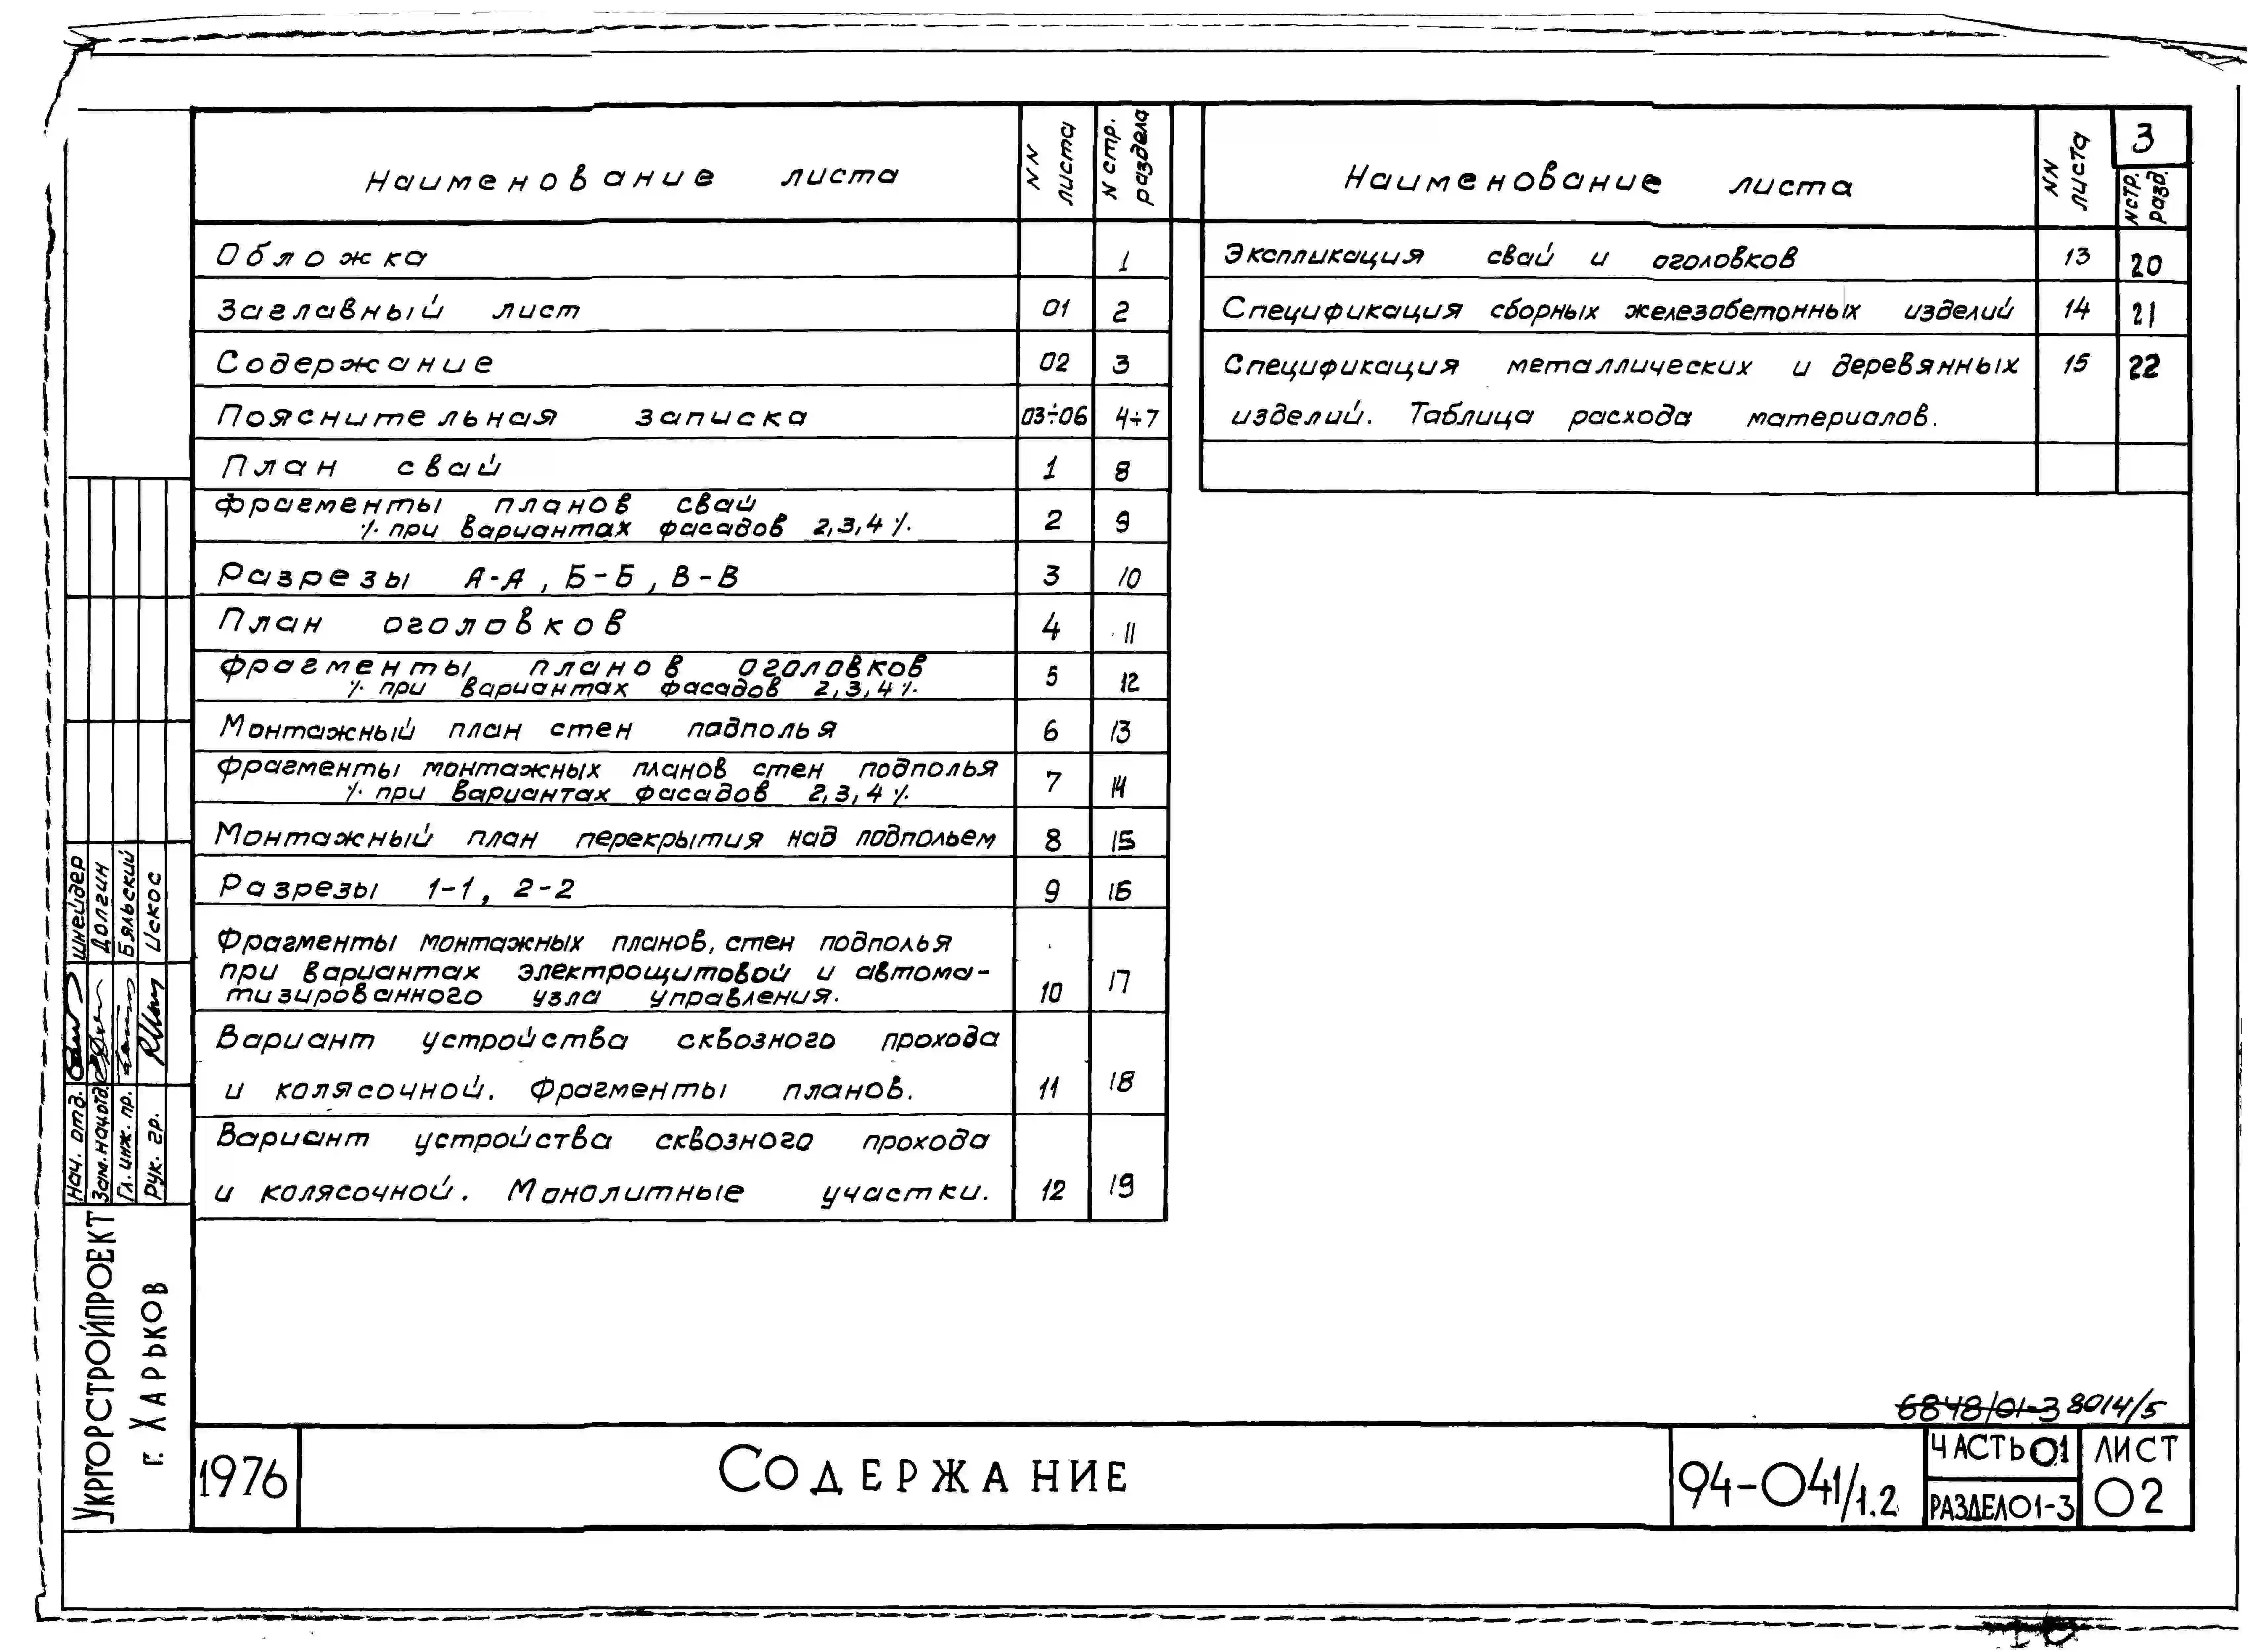 Наименование листа NN листа N стр. раздела
Обложка 1
Заглавный лист 01 2
Содержание 02 3
Пояснительная записка 03÷06 4÷7
План свай 1 8
Фрагменты планов свай
/· при вариантах фасадов 2,3,4 /· 2 9
Разрезы А-А, Б-Б, В-В 3 10
План оголовков 4 11
Фрагменты планов оголовков
/· при вариантах фасадов 2,3,4 /· 5 12
Монтажный план стен подполья 6 13
Фрагменты монтажных планов стен подполья
/· при вариантах фасадов 2,3,4 /· 7 14
Монтажный план перекрытия над подпольем 8 15
Разрезы 1-1, 2-2 9 16
Фрагменты монтажных планов, стен подполья
при вариантах электрощитовой и автома-
тизированного узла управления. 10 17
Вариант устройства сквозного прохода
и колясочной. Фрагменты планов. 11 18
Вариант устройства сквозного прохода
и колясочной. Монолитные участки. 12 19
3
Наименование листа NN листа Nстр. разд.
Экспликация свай и оголовков 13 20
Спецификация сборных железобетонных изделий 14 21
Спецификация металлических и деревянных 15 22
изделий. Таблица расхода материалов.
Нач. отд. Шнейдер
Зам.нач.отд. Долгин
Гл. инж. пр. Бяльский
Рук. гр. Искос
Укргорстройпроект
г. Харьков
6848/01-3 8014/5
1976
Содержание
94-041/1.2
Часть 01
Раздел 01-3
Лист
02